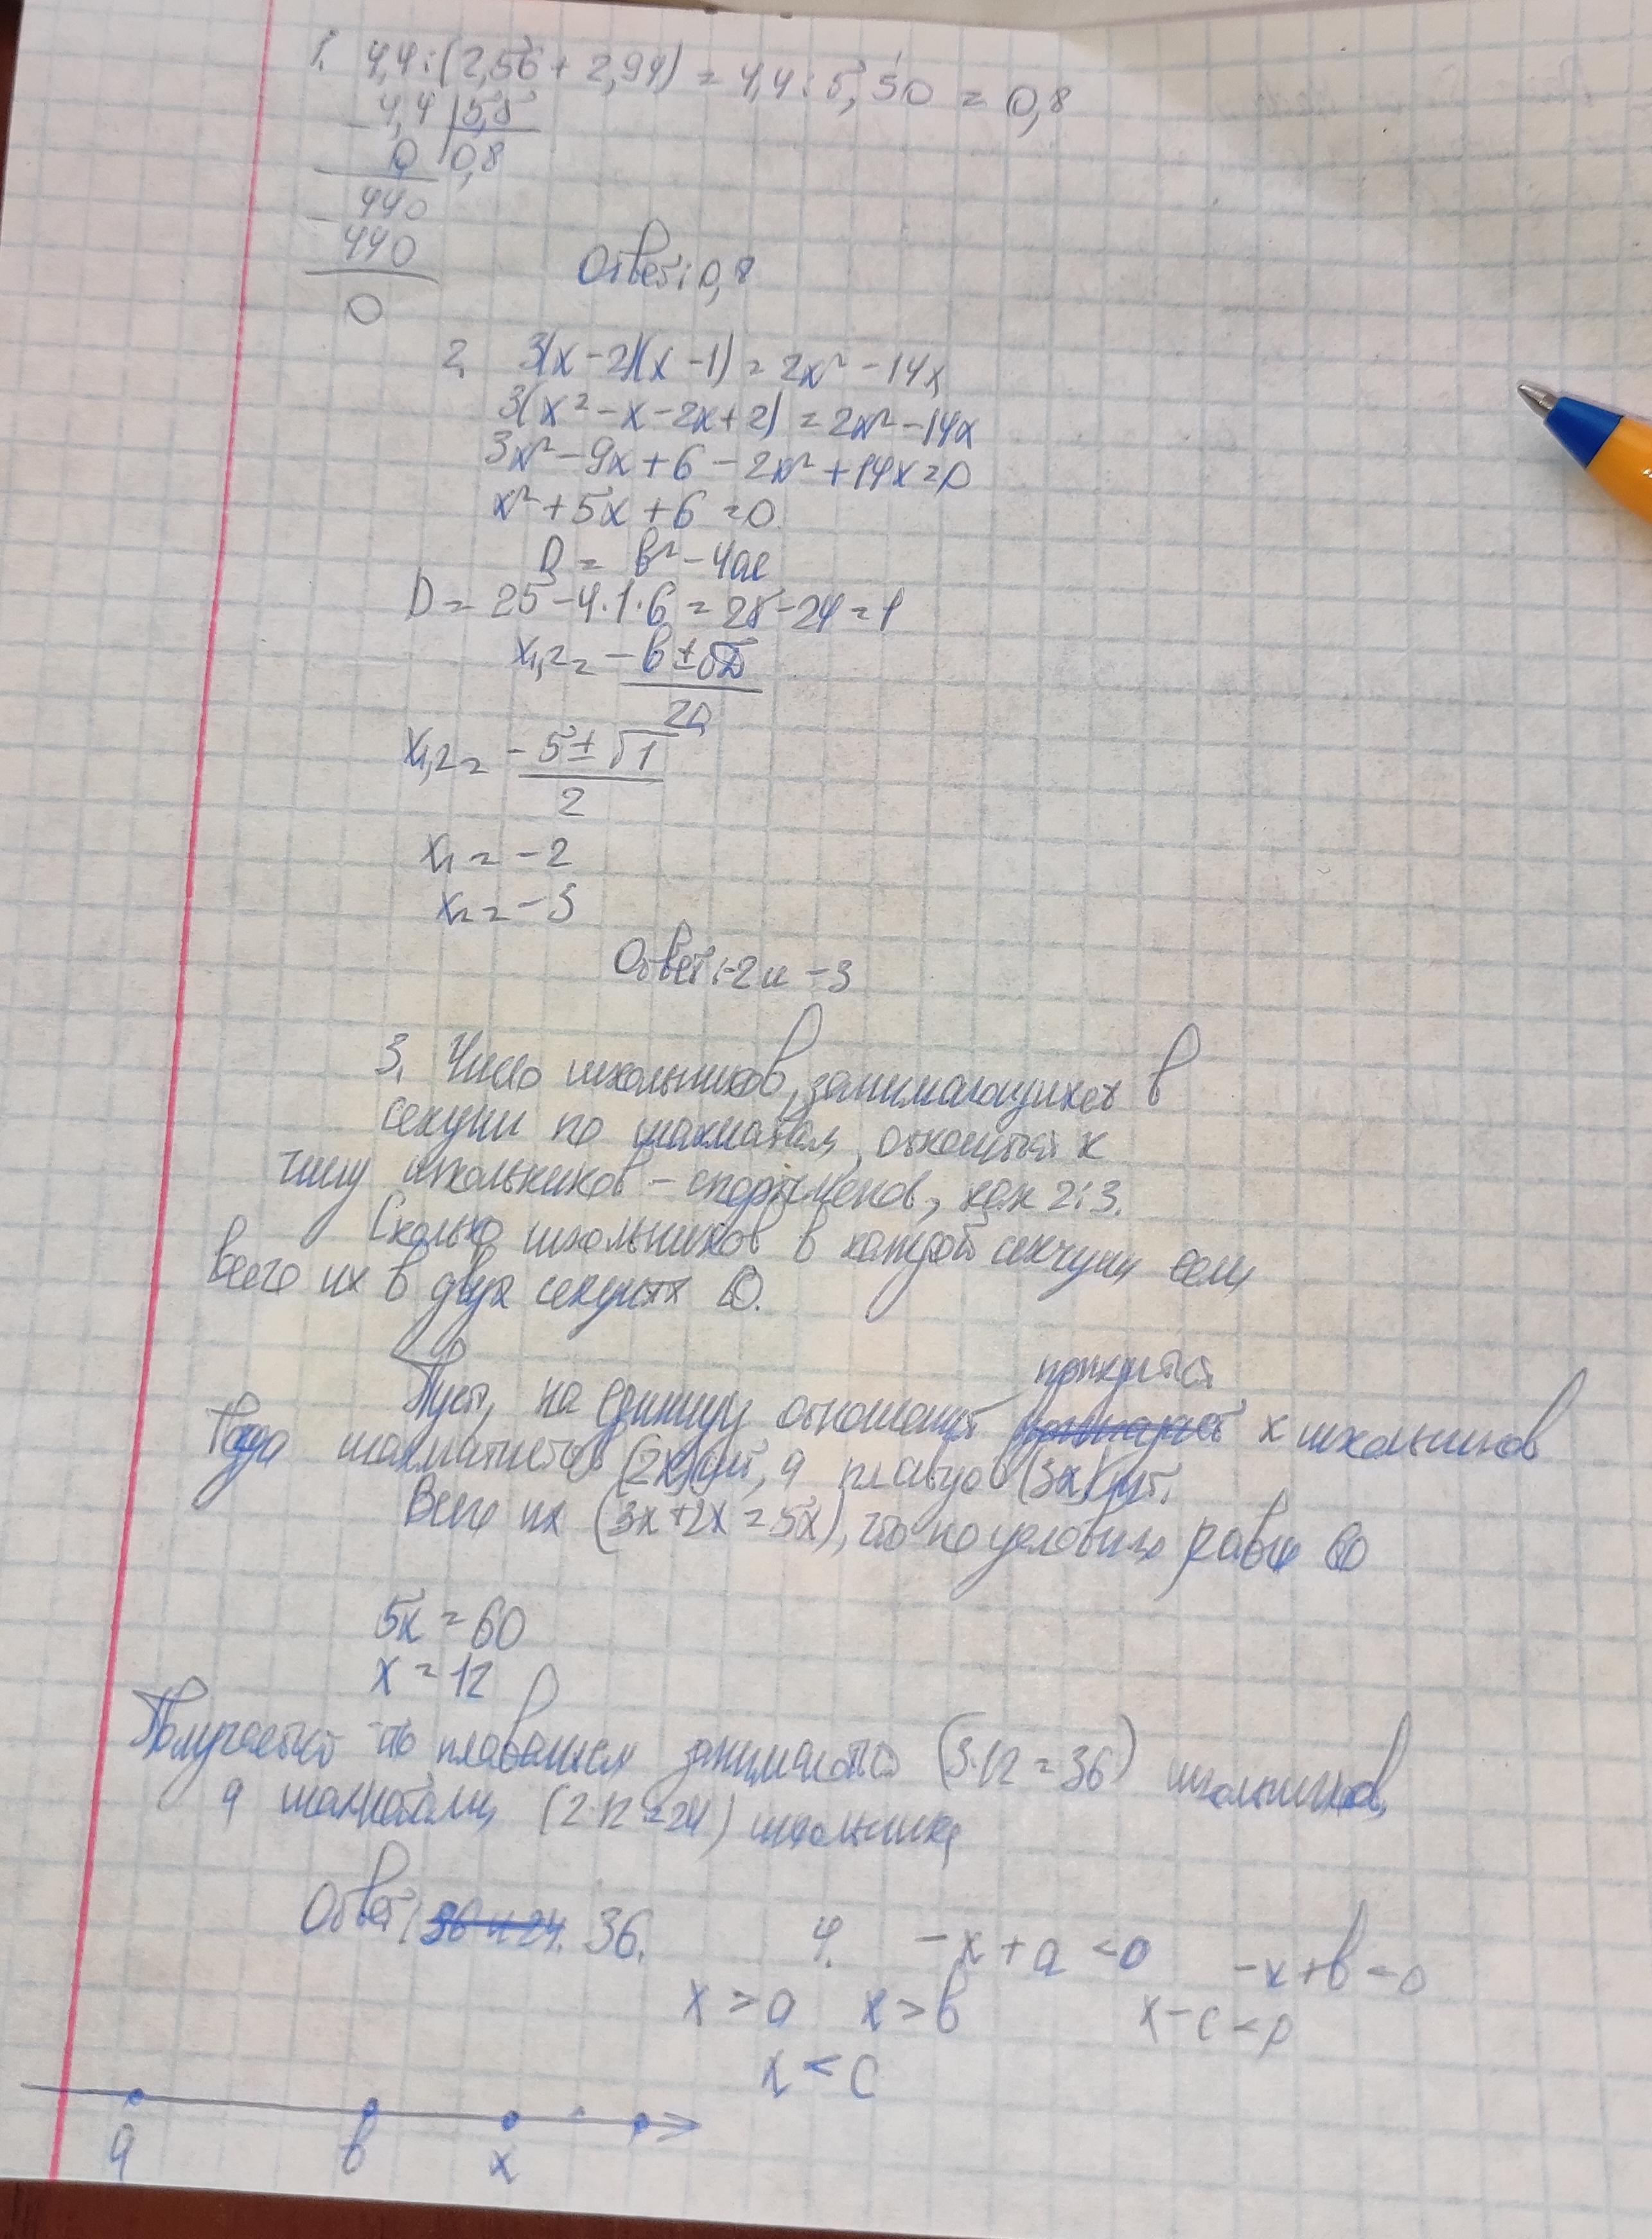 1. 4,4:(2,56+2,94)=4,4:5,50=0,8
4,4 5,5
0 0,8
440
440
0
Ответ: 0,8
2. 3(x-2)(x-1)=2x²-14x
3(x²-x-2x+2)=2x²-14x
3x²-9x+6-2x²+14x=0
x²+5x+6=0
D = b²-4ac
D = 25-4·1·6=25-24=1
x1,2= -b±√D
2a
x1,2= -5±√1
2
x1=-2
x2=-3
Ответ: -2 и -3
3. Число школьников, занимающихся в
секции по шахматам, относится к
числу школьников-спортсменов, как 2:3.
Сколько школьников в каждой секции, если
всего их в двух секциях 60.
Пусть, на единицу отношения приходится x школьников
Тогда шахматистов (2x)шт, а пловцов (3x)шт.
Всего их (3x+2x=5x), что по условию равно 60
5x=60
x=12
Получается что плаванием занимаются (3·12=36) школьников,
а шахматами (2·12=24) школьника
Ответ: 36 и 24. 36.
4. -x+a<0 -x+b<0
x>a x>b x-c<0
x<c
a b x